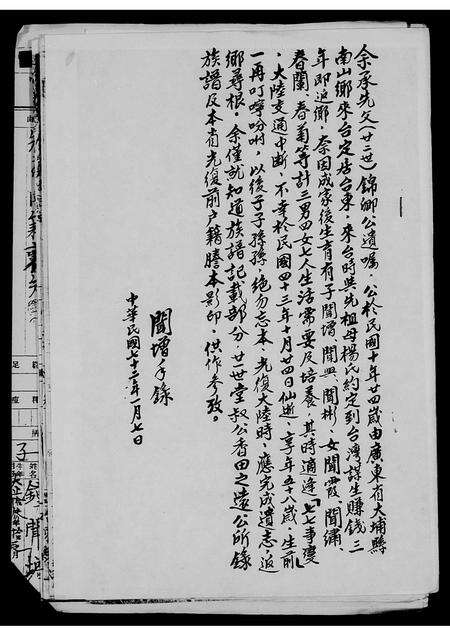 余承先父(廿二世)錦卿公遺囑，公於民國十年廿四歲由廣東省大埔縣
南山鄉來台定居台東，來台時與先祖母楊氏約定到台灣謀生賺錢三
年即返鄉，奈因成家後生育有子聞增、聞興、聞彬、女聞霞、聞繡、
春蘭、春菊等計三男四女七人生活需要及培養，其時適逢「七七事變」
、大陸交通中斷，不幸於民國四十三年十月廿四日仙逝，享年五十八歲，生前
一再叮嚀吩咐，以後子子孫孫，絕勿忘本，光復大陸時，應完成遺志，返
鄉尋根，余僅就知道族譜記載部分，廿一世堂叔公香田之遠公所錄
族譜及本省光復前戶籍謄本影印，供作參攷。
聞增手錄
中華民國七十三年一月七日